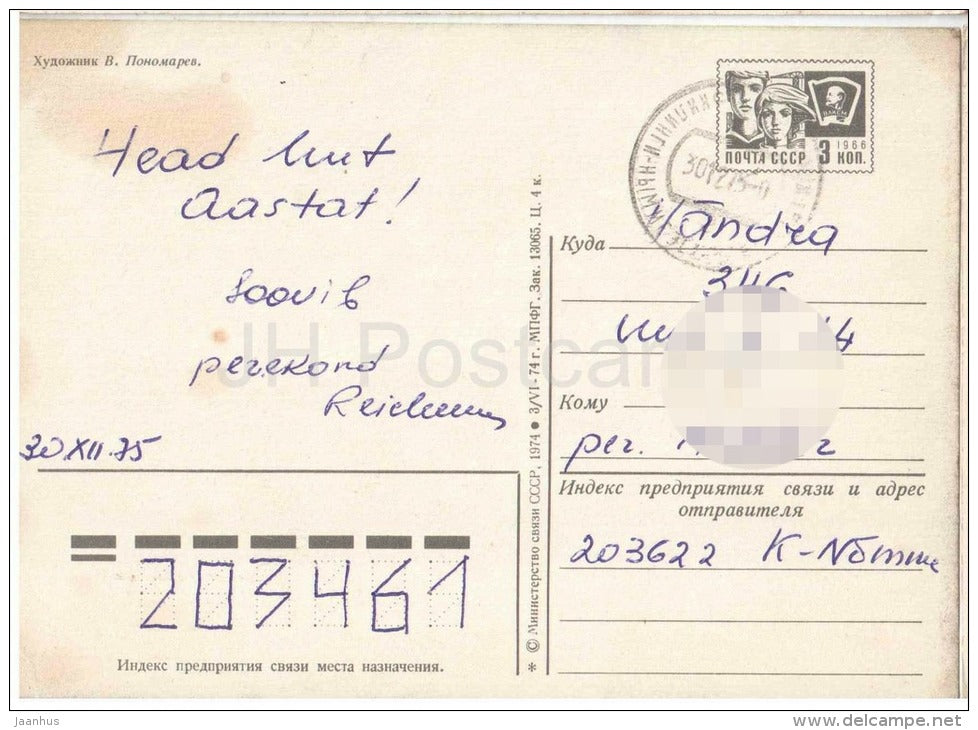 Художник В. Пономарев.
Head uut
Aastat!
Soovib
perekond
Reichmann
30 XII. 75
203461
Индекс предприятия связи места назначения.
* © Министерство связи СССР, 1974 ● 3/VI - 74 г. МПФГ. Зак. 13065. Ц. 4 к.
ПОЧТА СССР 3 КОП.
1966
Куда Kändra
346
4
Кому
per.
Индекс предприятия связи и адрес
отправителя
203622 K-Nõmme
JH Postcar
jaanhus
www.delcampe.net